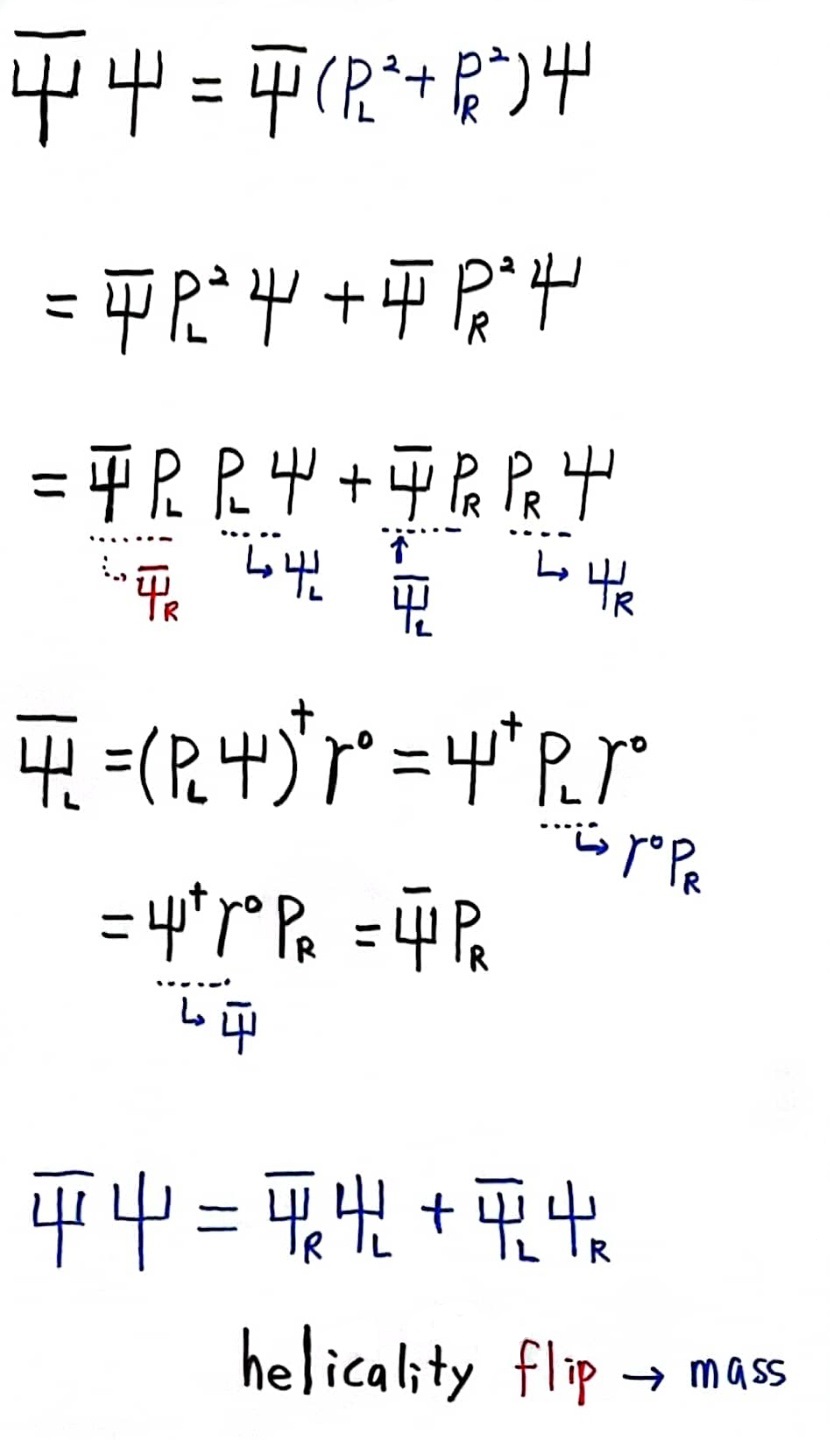 Ψ̅ Ψ = Ψ̅ (P_L² + P_R²) Ψ
= Ψ̅ P_L² Ψ + Ψ̅ P_R² Ψ
= Ψ̅ P_L P_L Ψ + Ψ̅ P_R P_R Ψ
↳ Ψ̅_R ↳ Ψ_L ↑ Ψ̅_L ↳ Ψ_R
Ψ̅_L = (P_L Ψ)† γ⁰ = Ψ† P_L γ⁰
↳ γ⁰ P_R
= Ψ† γ⁰ P_R = Ψ̅ P_R
↳ Ψ̅
Ψ̅ Ψ = Ψ̅_R Ψ_L + Ψ̅_L Ψ_R
helicality flip → mass